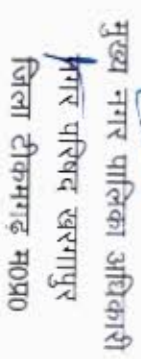 मुख्य नगर पालिका अधिकारी
नगर परिषद खरगापुर
जिला टीकमगढ़ म०प्र०